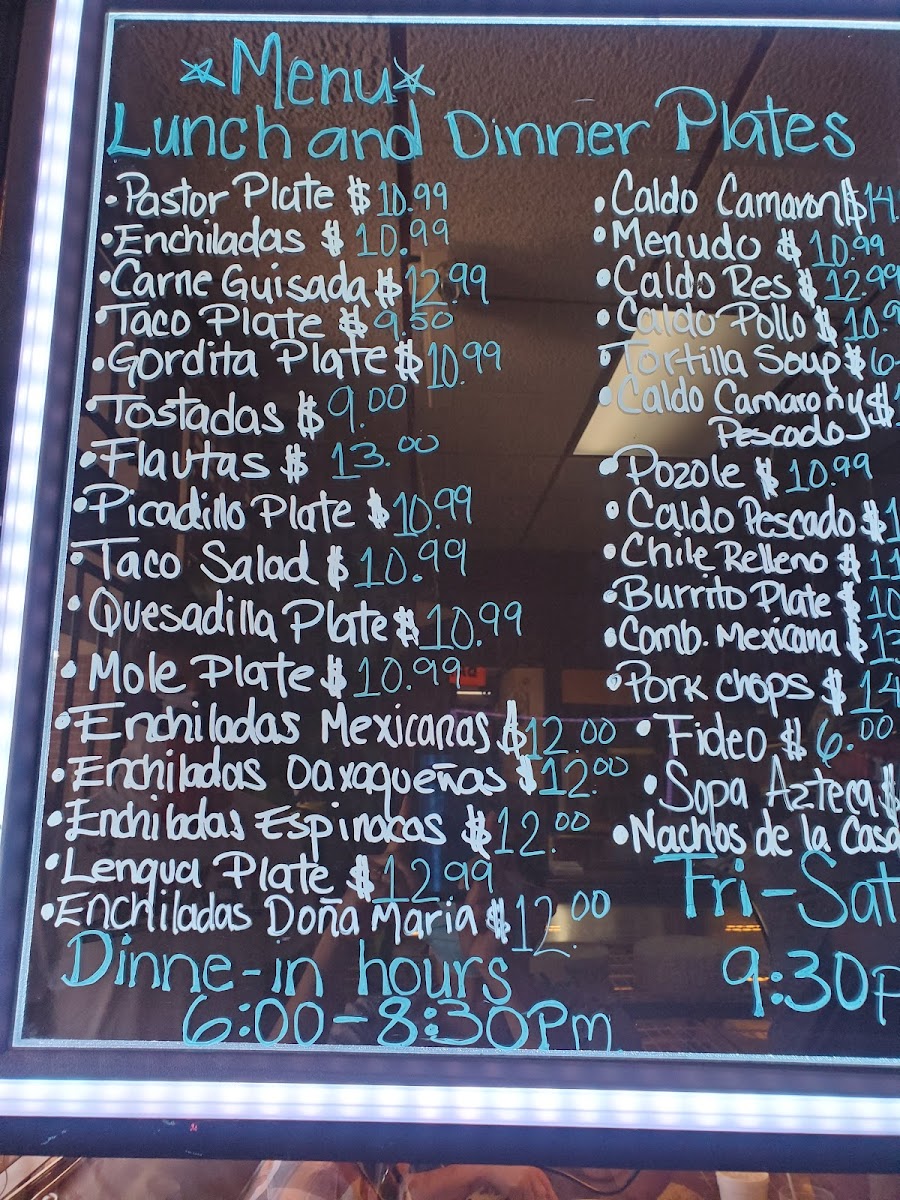 Menu
Lunch and Dinner Plates
• Pastor Plate $10.99
• Enchiladas $10.99
• Carne Guisada $12.99
• Taco Plate $9.50
• Gordita Plate $10.99
• Tostadas $9.00
• Flautas $13.00
• Picadillo Plate $10.99
• Taco Salad $10.99
• Quesadilla Plate $10.99
• Mole Plate $10.99
• Enchiladas Mexicanas $12.00
• Enchiladas Oaxaqueñas $12.00
• Enchiladas Espinacas $12.00
• Lengua Plate $12.99
• Enchiladas Doña Maria $12.00
Dinne-in hours
6:00-8:30Pm
• Caldo Camaron $14.
• Menudo $10.99
• Caldo Res $12.99
• Caldo Pollo $10.9
• Tortilla Soup $6
• Caldo Camaron y $
Pescado
• Pozole $10.99
• Caldo Pescado $1
• Chile Relleno $11
• Burrito Plate $10
• Comb. Mexicana $13
• Pork chops $14
• Fideo $6.00
• Sopa Azteca $
• Nachos de la Casa
Fri-Sat
9:30p